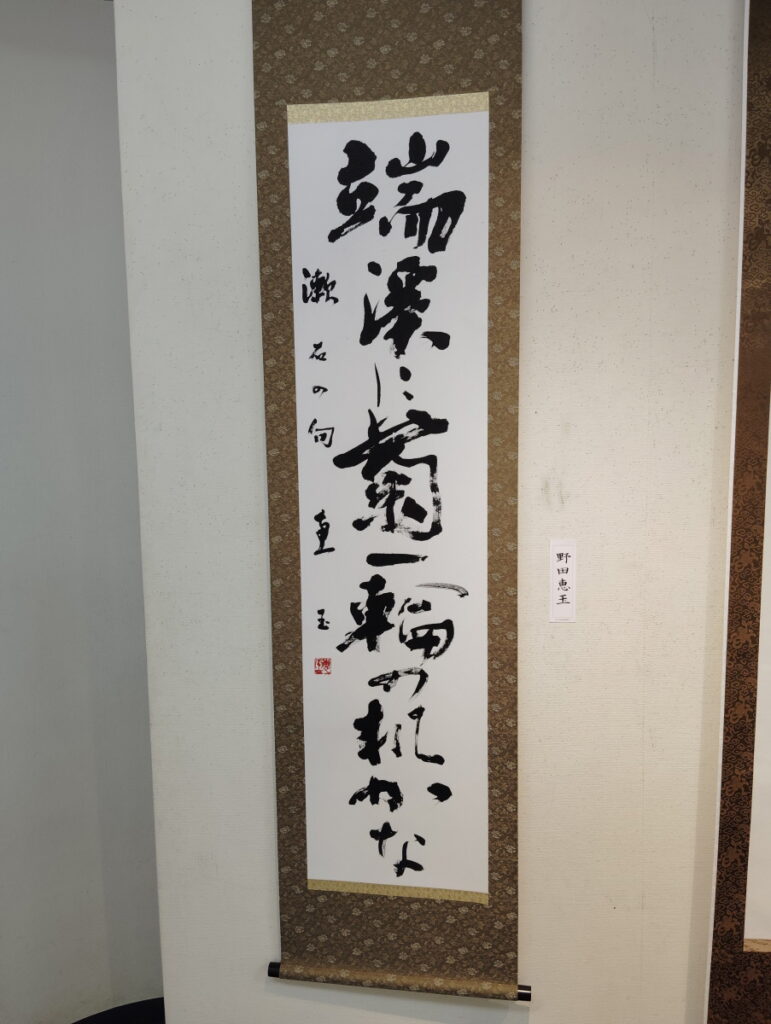 端渓に菊一輪の机かな
漱石の句 恵玉
野田恵玉